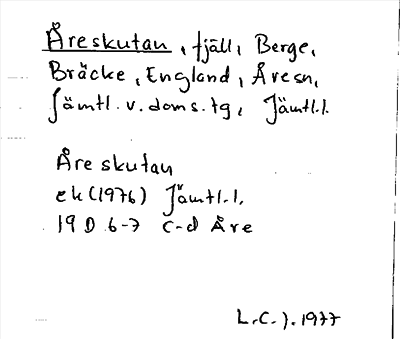 Åreskutan, fjäll, Berge,
Bräcke, England, Åresn,
Jämtl. v. doms. tg, Jämtl.l.
Åreskutan
ek (1976) Jämtl.l.
19 D 6-7 c-d Åre
L.C.J. 1977